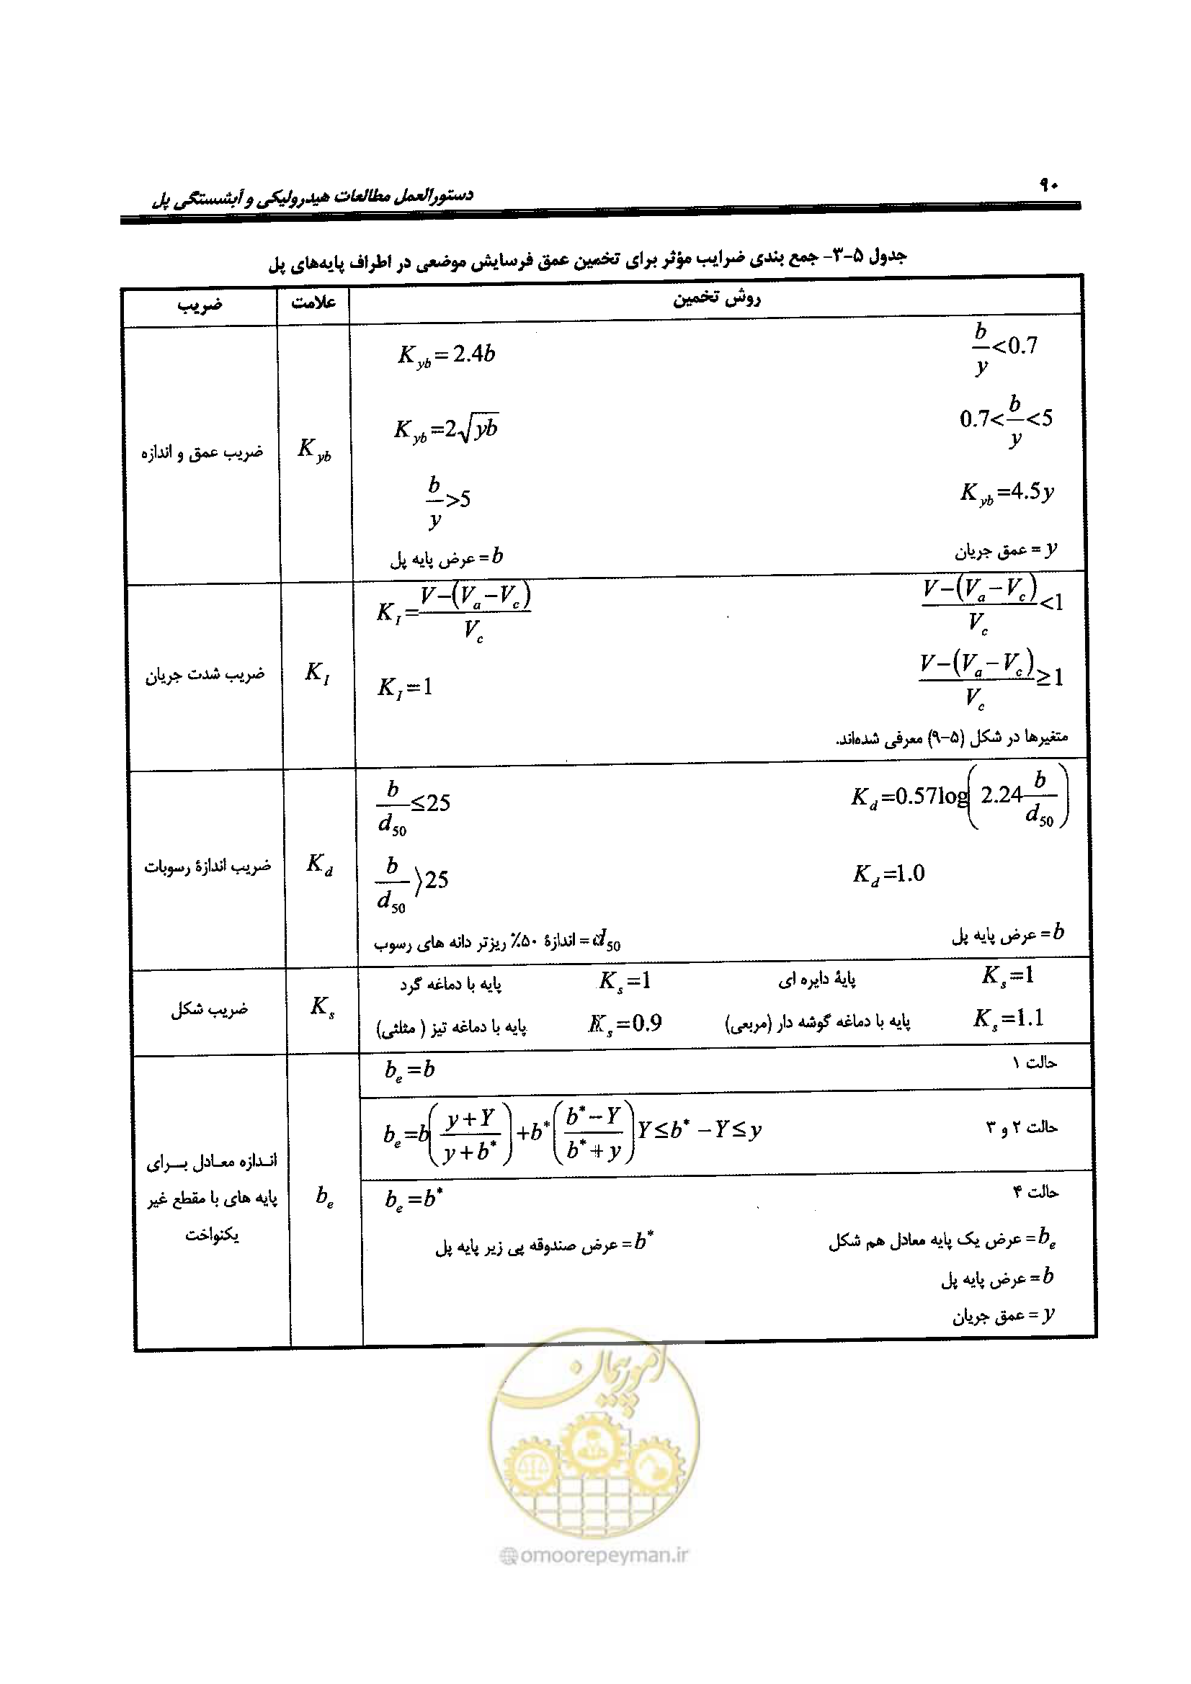 ۹۰
دستورالعمل مطالعات هیدرولیکی و آبشستگی پل
جدول ۵-۳- جمع بندی ضرایب مؤثر برای تخمین عمق فرسایش موضعی در اطراف پایه‌های پل
ضریب	علامت	روش تخمین
ضریب عمق و اندازه
K_yb
K_yb = 2.4b	b/y < 0.7
K_yb = 2√(yb)	0.7 < b/y < 5
b/y > 5	K_yb = 4.5y
y = عمق جریان
b = عرض پایه پل
ضریب شدت جریان
K_I
K_I = (V-(V_a-V_c))/V_c	(V-(V_a-V_c))/V_c < 1
K_I = 1	(V-(V_a-V_c))/V_c ≥ 1
متغیرها در شکل (۵-۹) معرفی شده‌اند.
ضریب اندازۀ رسوبات
K_d
b/d_50 ≤ 25	K_d = 0.57log(2.24 b/d_50)
b/d_50 ⟩ 25	K_d = 1.0
b = عرض پایه پل
d_50 = اندازۀ ۵۰٪ ریزتر دانه های رسوب
ضریب شکل
K_s
K_s = 1	پایۀ دایره ای	K_s = 1	پایه با دماغه گرد
K_s = 1.1	پایه با دماغه گوشه دار (مربعی)	K_s = 0.9	پایه با دماغه تیز ( مثلثی)
اندازه معادل برای
پایه های با مقطع غیر
یکنواخت
b_e
حالت ۱	b_e = b
حالت ۲ و ۳	b_e = b((y+Y)/(y+b*)) + b*((b*-Y)/(b*+y)) Y ≤ b* - Y ≤ y
حالت ۴	b_e = b*
b_e = عرض یک پایه معادل هم شکل	b* = عرض صندوقه پی زیر پایه پل
b = عرض پایه پل
y = عمق جریان
امور پیمان
@omoorepeyman.ir